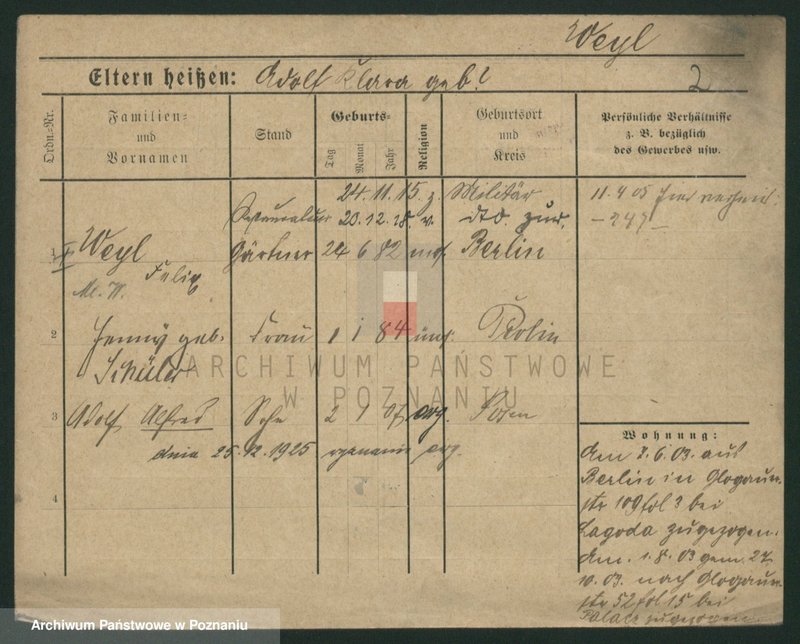 Weyl
Eltern heißen: Adolf Klara geb.?
2
Ordn.-Nr.
Familien-
und
Vornamen
Stand
Geburts-
Tag
Monat
Jahr
Religion
Geburtsort
und
Kreis
Persönliche Verhältnisse
z. B. bezüglich
des Gewerbes usw.
24. 11. 15. z. Militär
20. 12. 18. v. dto. zur.
11. 4 05
- 247 -
1 Weyl Gärtner 24 6 82 mos. Berlin
Felix
2 Jenny geb. Frau 1 1 84
Schüler
3 Adolf Alfred Sohn 2 1 07 Posen
dnia 25. 12. 1925
4
ARCHIWUM PAŃSTWOWE
W POZNANIU
Wohnung:
Am 2. 6. 03. aus
Berlin in Glogauer-
str 109 bei
Lagoda zugezogen.
Am. 1. 8. 03 gem. 27.
10. 03. nach Glogauer-
str 52 15 bei
zugezogen.
Archiwum Państwowe w Poznaniu